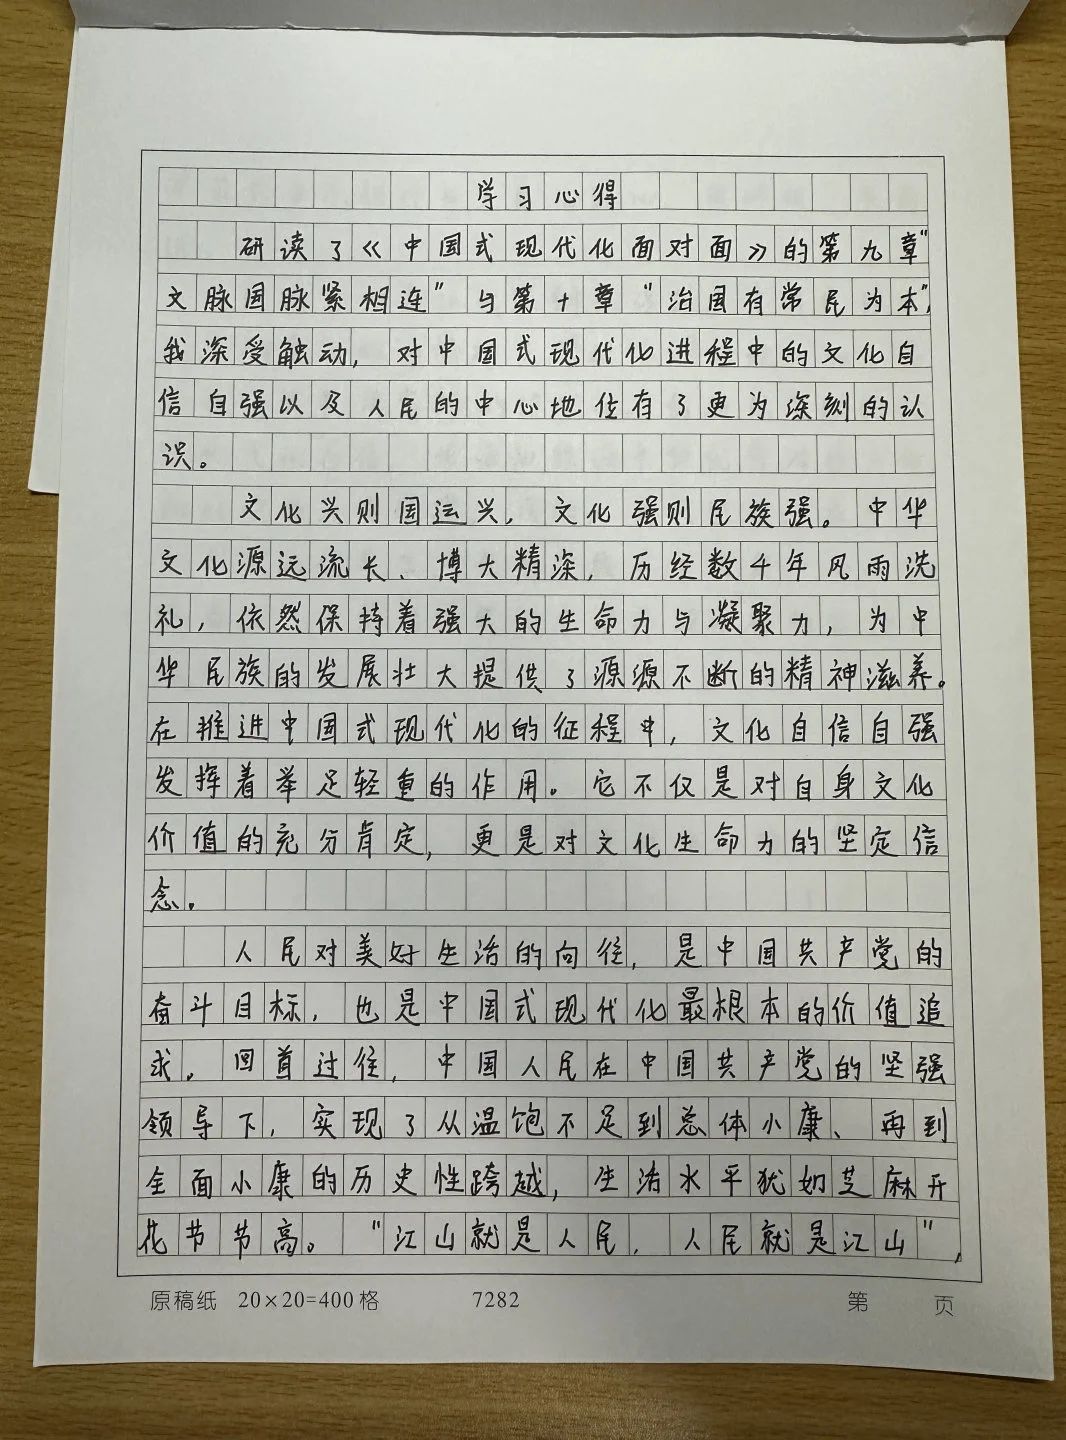 学习心得
研读了《中国式现代化面对面》的第九章“
文脉国脉紧相连”与第十章“治国有常民为本”,
我深受触动,对中国式现代化进程中的文化自
信自强以及人民的中心地位有了更为深刻的认
识。
文化兴则国运兴,文化强则民族强。中华
文化源远流长、博大精深,历经数千年风雨洗
礼,依然保持着强大的生命力与凝聚力,为中
华民族的发展壮大提供了源源不断的精神滋养。
在推进中国式现代化的征程中,文化自信自强
发挥着举足轻重的作用。它不仅是对自身文化
价值的充分肯定,更是对文化生命力的坚定信
念。
人民对美好生活的向往,是中国共产党的
奋斗目标,也是中国式现代化最根本的价值追
求。回首过往,中国人民在中国共产党的坚强
领导下,实现了从温饱不足到总体小康、再到
全面小康的历史性跨越,生活水平犹如芝麻开
花节节高。“江山就是人民,人民就是江山”,
原稿纸 20×20=400格 7282 第 页